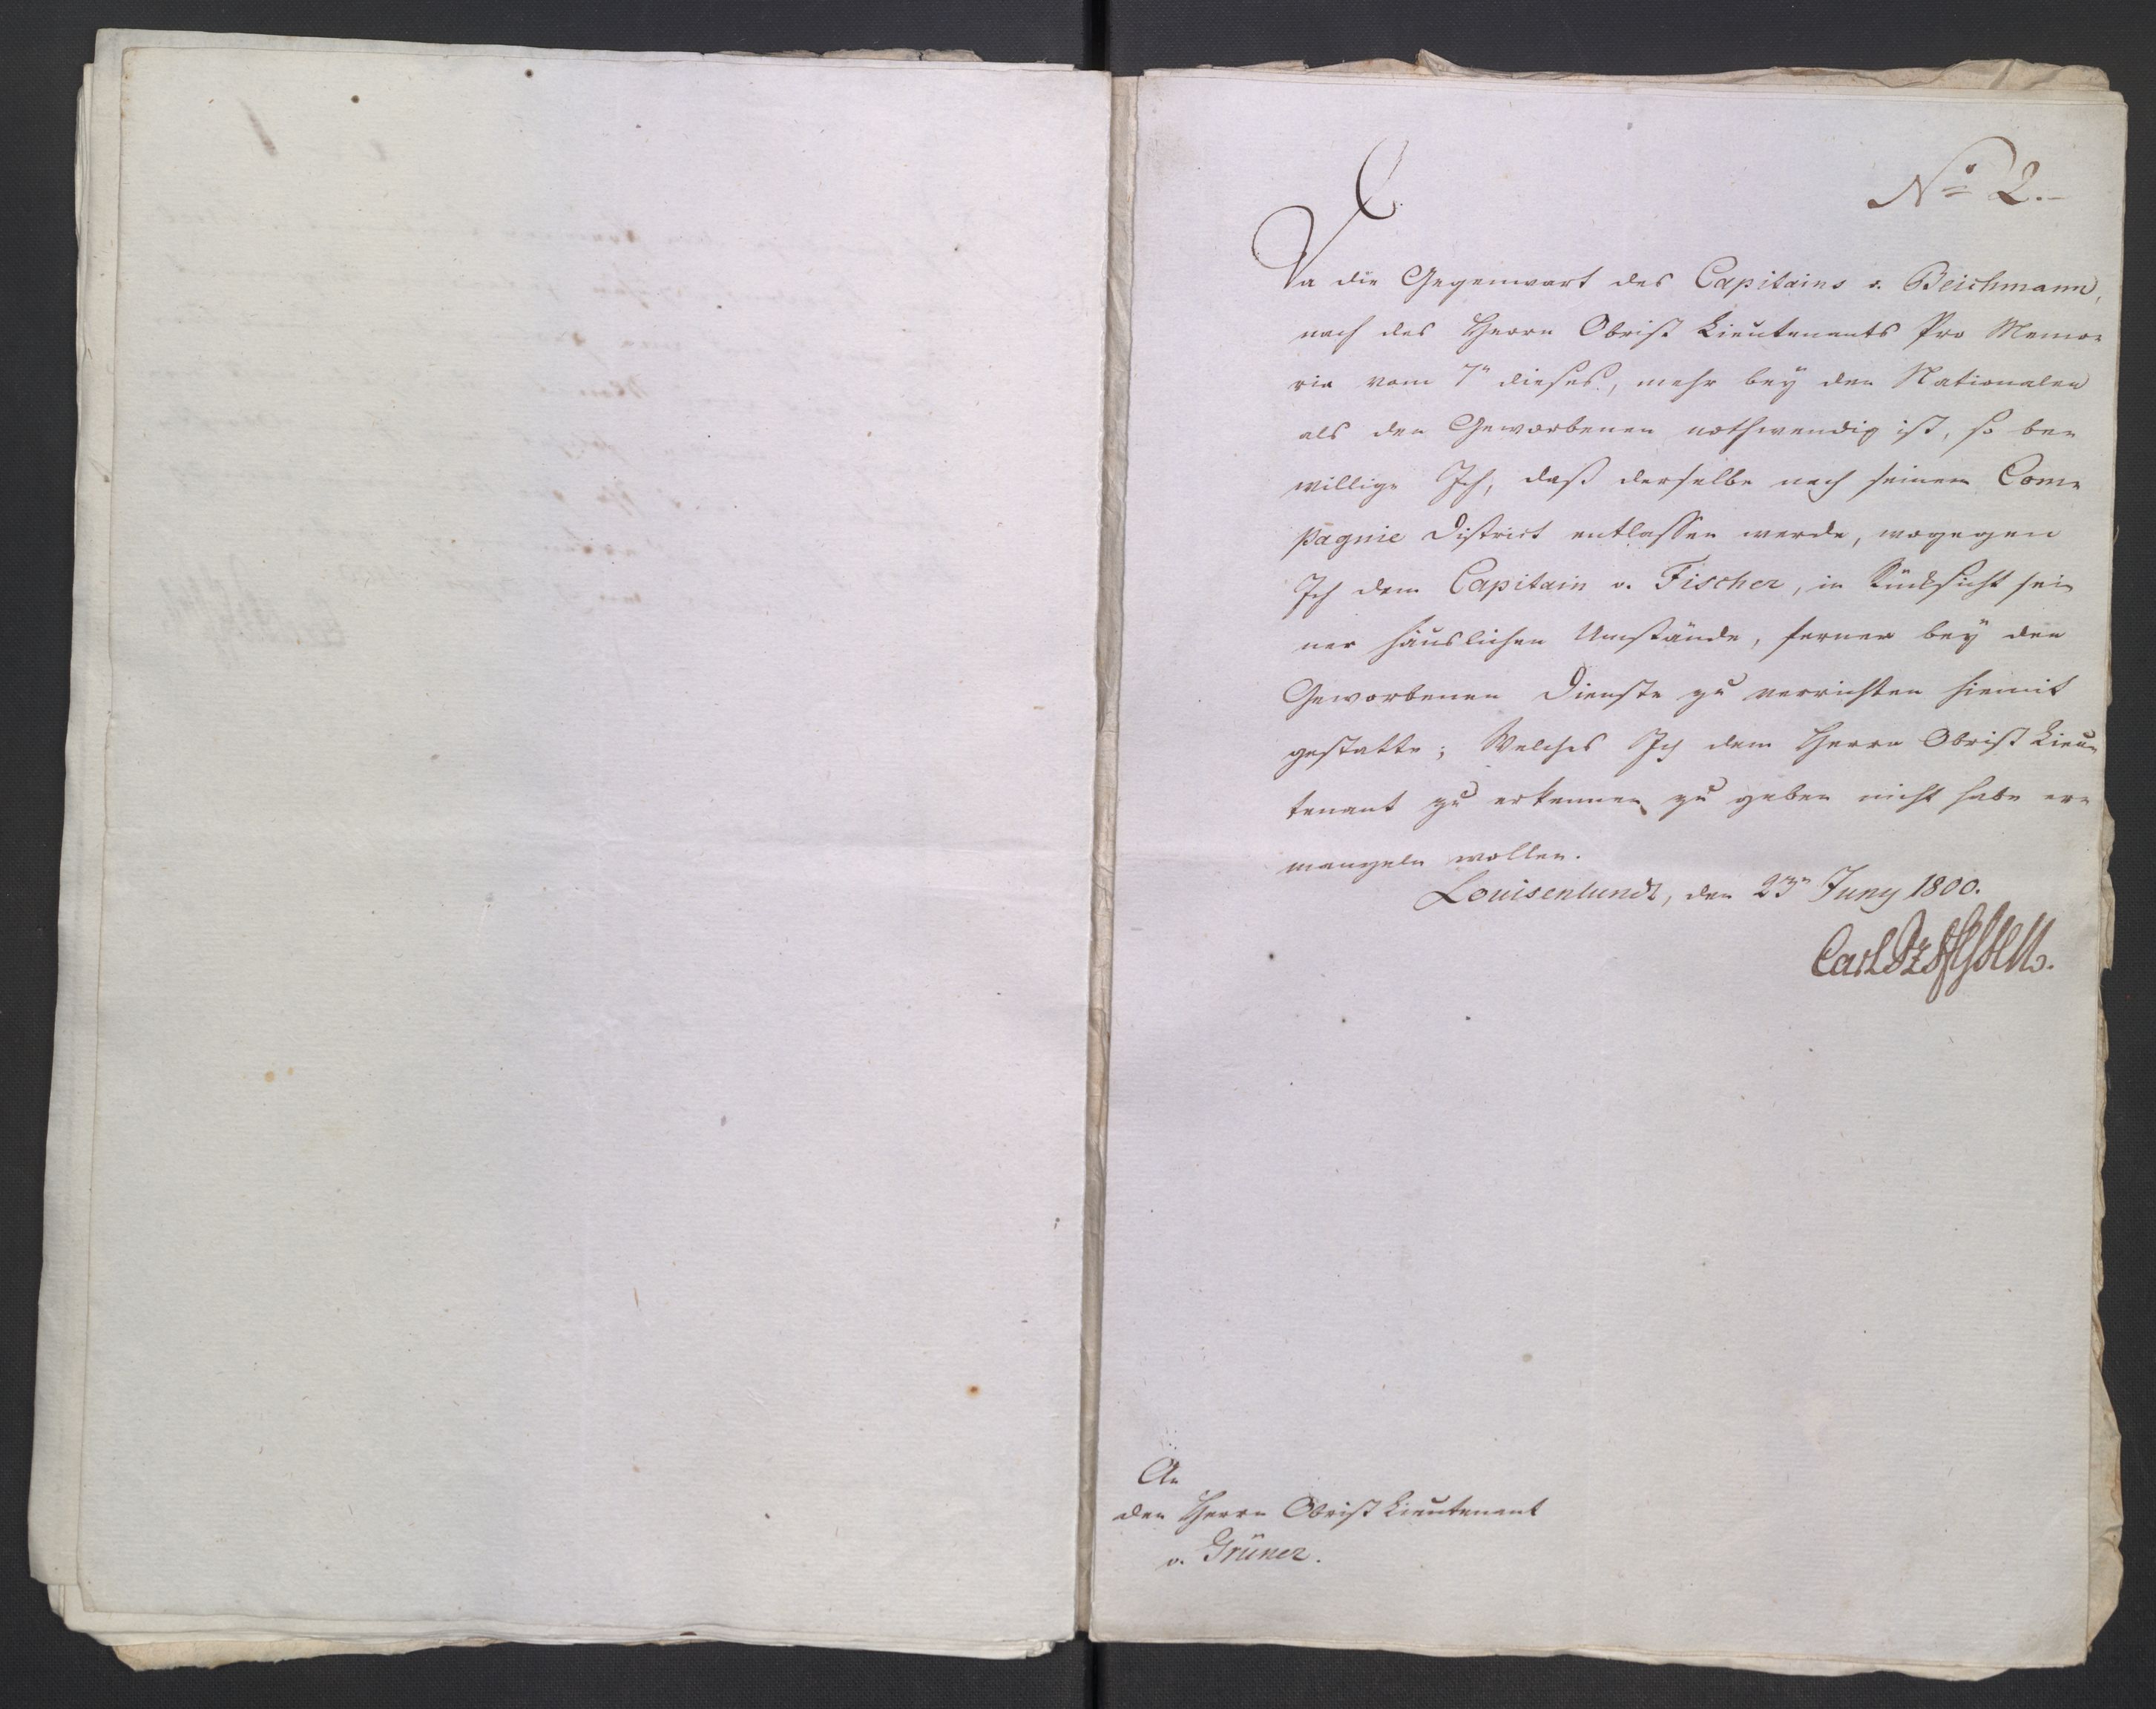 No 2.
Da die Gegenwart des Capitains v. Beichmann,
nach des Herrn Obrist Lieutenants Pro Memo-
ria vom 7n dieses, mehr bey den Nationalen
als den Geworbenen nothwendig ist, so be-
willige Ich, daß derselbe nach seinem Com-
pagnie District entlassen werde, wogegen
Ich dem Capitain v. Fischer, in Rücksicht sei-
ner häuslichen Umstände, ferner bey den
Geworbenen Dienste zu verrichten hiemit
gestatte; Welches Ich dem Herrn Obrist Lieu-
tenant zu erkennen zu geben nicht habe er-
mangeln wollen.
Louisenlundt, den 23n Juny 1800.
Carl
An
den Herrn Obrist Lieutenant
v. Grüner.